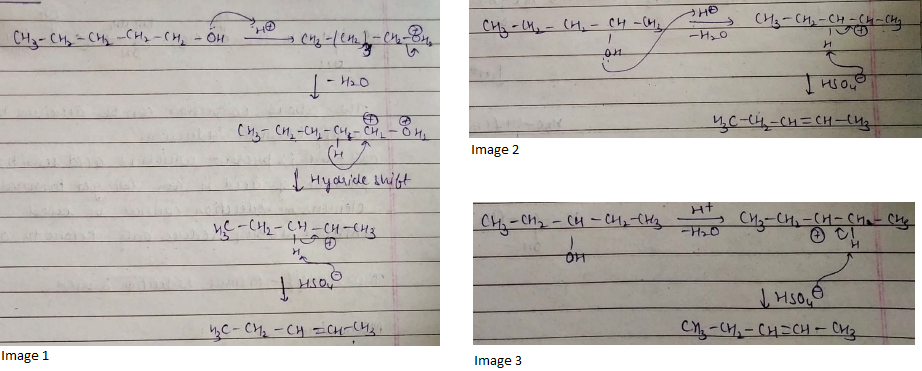 CH3-CH2-CH2-CH2-CH2-ÖH H⊕ → CH3-(CH2)3-CH2-⊕OH2
↓ -H2O
CH3-CH2-CH2-CH2-⊕CH2-⊕OH2
H
↓ Hydride shift
H3C-CH2-CH-CH-CH3
H ⊕
↓ HSO4⊖
H3C-CH2-CH=CH-CH3
Image 1
CH3-CH2-CH2-CH-CH3 H⊕ → -H2O CH3-CH2-CH-CH-CH3
OH H ⊕
↓ HSO4⊖
H3C-CH2-CH=CH-CH3
Image 2
CH3-CH2-CH-CH2-CH3 H+ → -H2O CH3-CH2-CH-CH2-CH3
OH ⊕ H
↓ HSO4⊖
CH3-CH2-CH=CH-CH3
Image 3